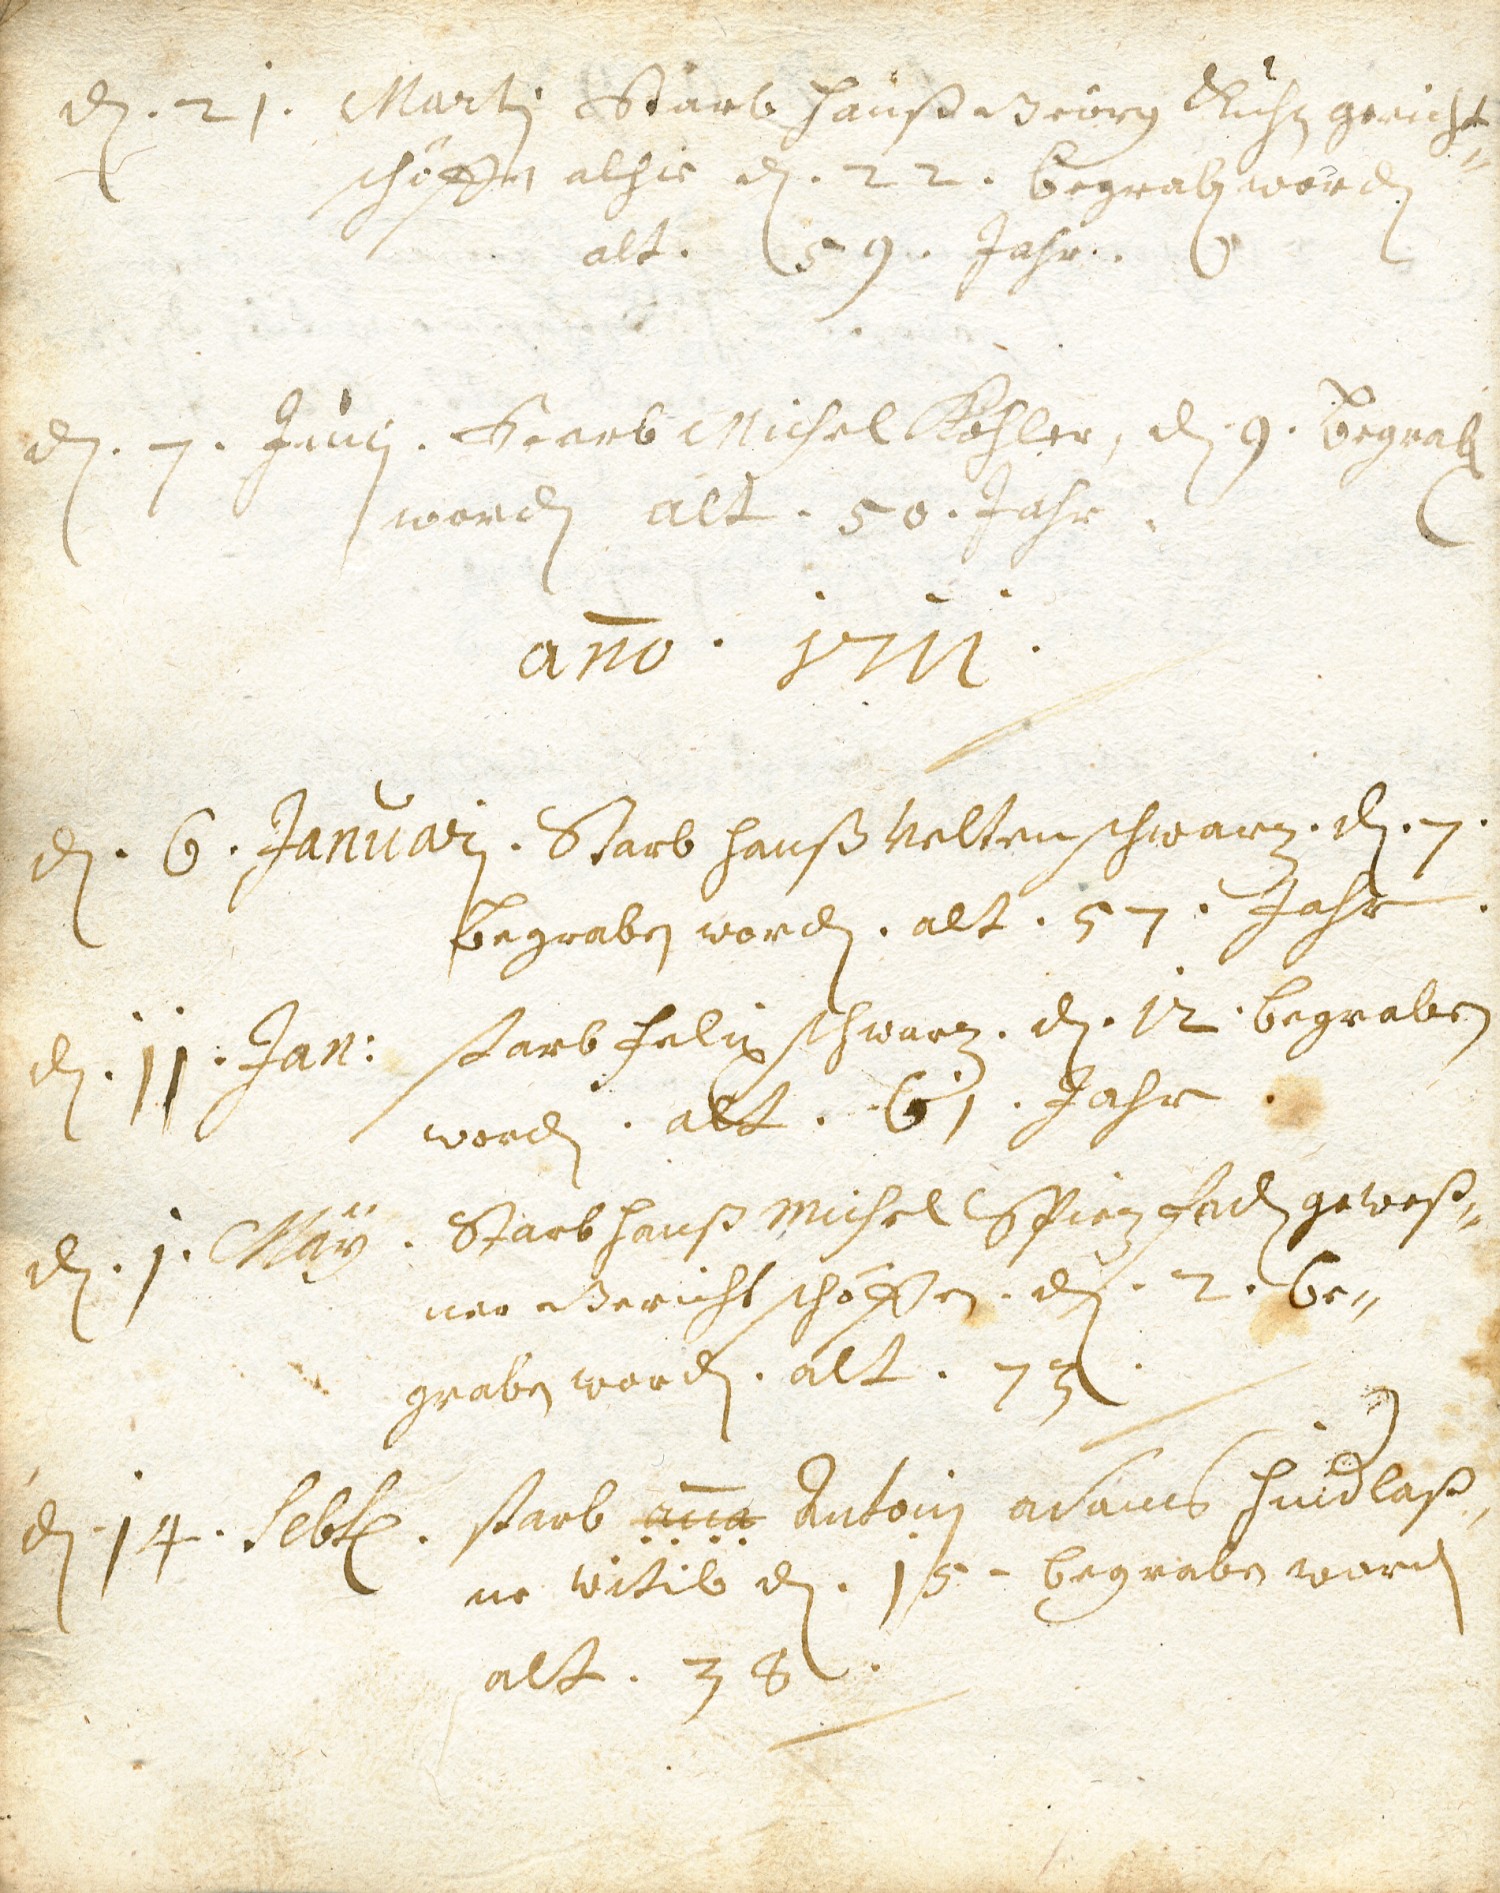 d. 21. Martij Starb Hanß Georg Kuhn gericht=
schöffen alhie d. 22. begraben worden
alt. 59. Jahr.
d. 7. Junij. Starb Michel Kohler, d. 9. Begraben
worden alt. 50. Jahr.
año. 1711.
d. 6. Januarij. Starb Hanß Velten schwarz. d. 7.
Begraben worden. alt. 57. Jahr.
d. 11. Jan: starb Felix schwarz. d. 12. begraben
worden. alt. 61. Jahr.
d. 1. Maÿ. Starb Hanß Michel geweß=
ner Gericht schöffen. d. 2. be=
graben worden. alt. 73.
d. 14. Sebt. starb aña Antonij adams hindlaß=
ne witib d. 15 - begraben worden
alt. 38.